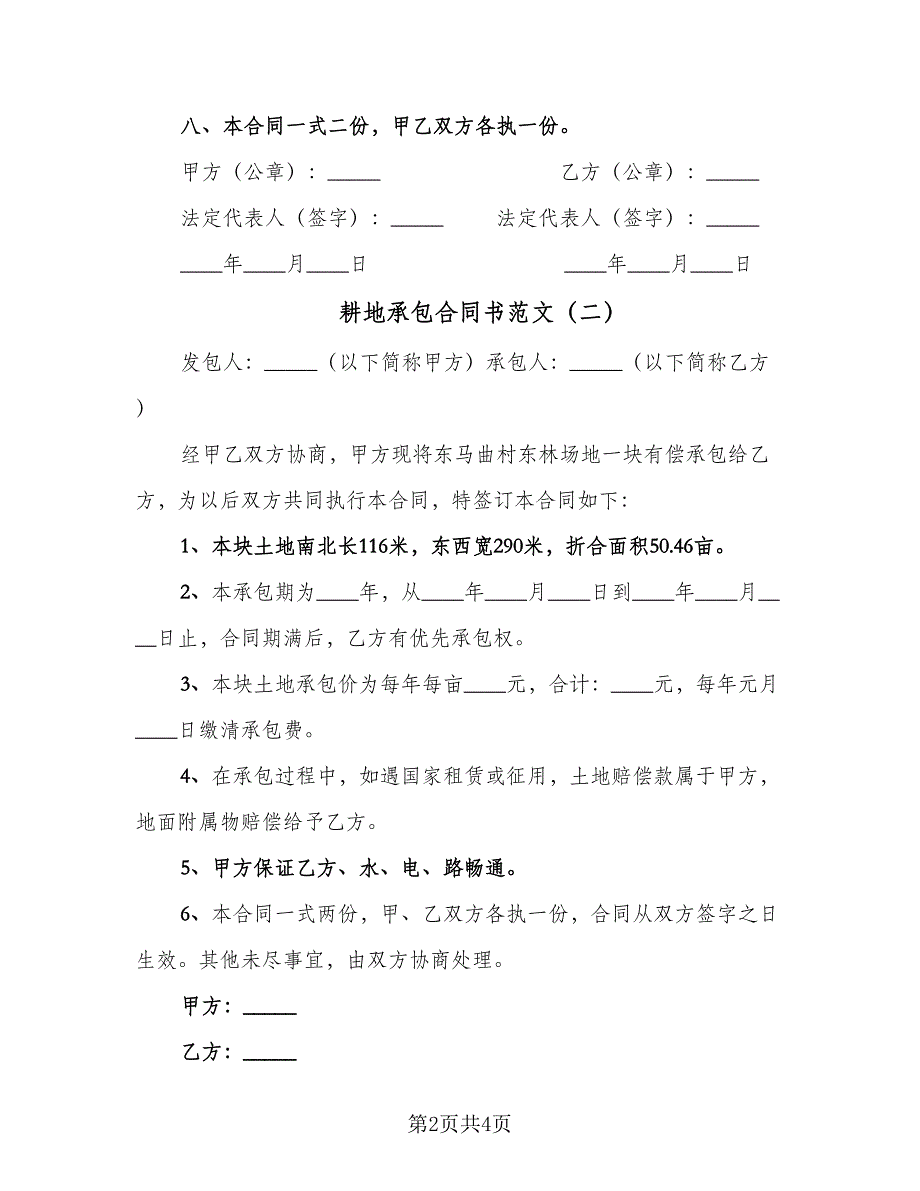 八、本合同一式二份，甲乙双方各执一份。
甲方（公章）：_____ 乙方（公章）：_____
法定代表人（签字）：_____ 法定代表人（签字）：_____
____年____月____日 ____年____月____日
耕地承包合同书范文（二）
发包人：_____（以下简称甲方）承包人：_____（以下简称乙方
）
经甲乙双方协商，甲方现将东马曲村东林场地一块有偿承包给乙
方，为以后双方共同执行本合同，特签订本合同如下：
1、本块土地南北长116米，东西宽290米，折合面积50.46亩。
2、本承包期为____年，从____年____月____日到____年____月__
__日止，合同期满后，乙方有优先承包权。
3、本块土地承包价为每年每亩____元，合计：____元，每年元月
____日缴清承包费。
4、在承包过程中，如遇国家租赁或征用，土地赔偿款属于甲方，
地面附属物赔偿给予乙方。
5、甲方保证乙方、水、电、路畅通。
6、本合同一式两份，甲、乙双方各执一份，合同从双方签字之日
生效。其他未尽事宜，由双方协商处理。
甲方：_____
乙方：_____
第2页共4页